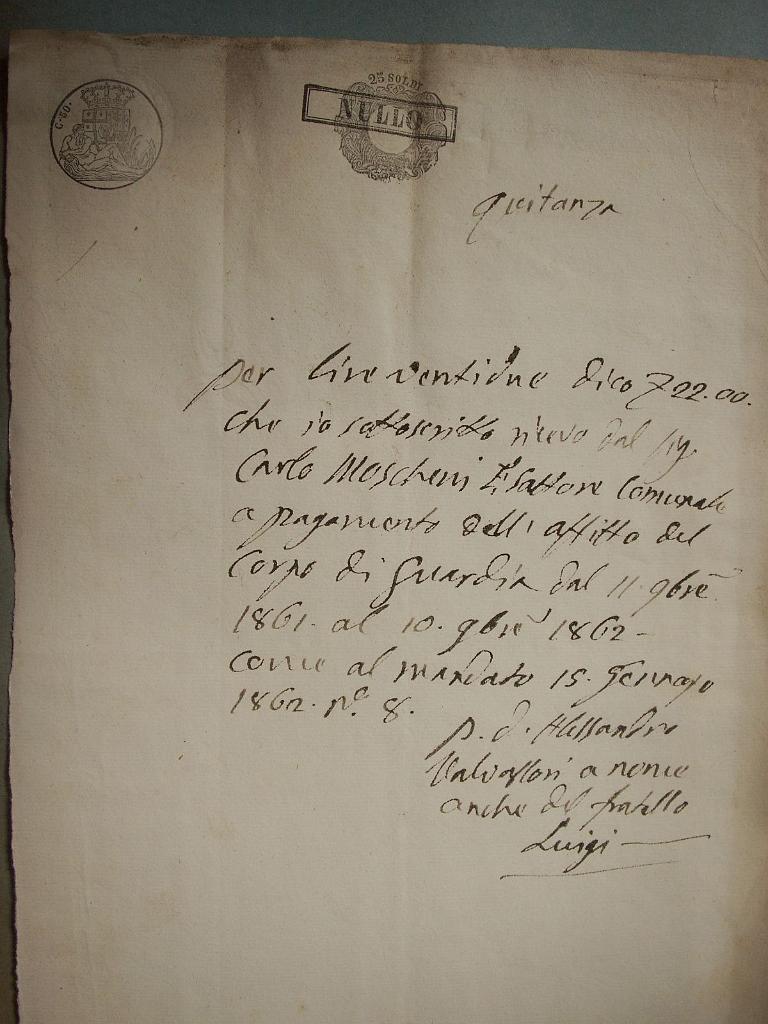 C. 50.
25 SOLDI
NULLO
Quitanza
per lire ventidue dico £ 22.00.
che io sottoscritto ricevo dal Sig.
Carlo Moscheni Esattore Comunale
a pagamento dell' affitto del
Corpo di Guardia dal 11. 9bre
1861. al 10. 9bre 1862 -
come al mandato 15. Gennajo
1862. No. 8.
p. d. Alessandro
Valvassori a nome
anche del fratello
Luigi